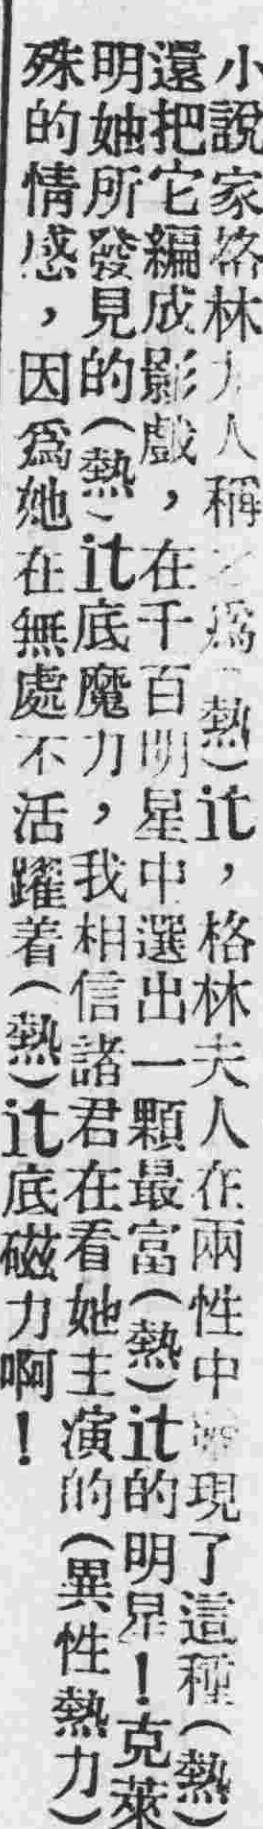 小說家格林夫人稱之爲（熱）it，格林夫人在兩性中發現了這種（熱）
還把它編成影戲，在千百明星中選出一顆最富（熱）it的明星！克萊
明她所發見的（熱）it底魔力，我相信諸君在看她主演的（異性熱力）
殊的情感，因爲她在無處不活躍着（熱）it底磁力啊！